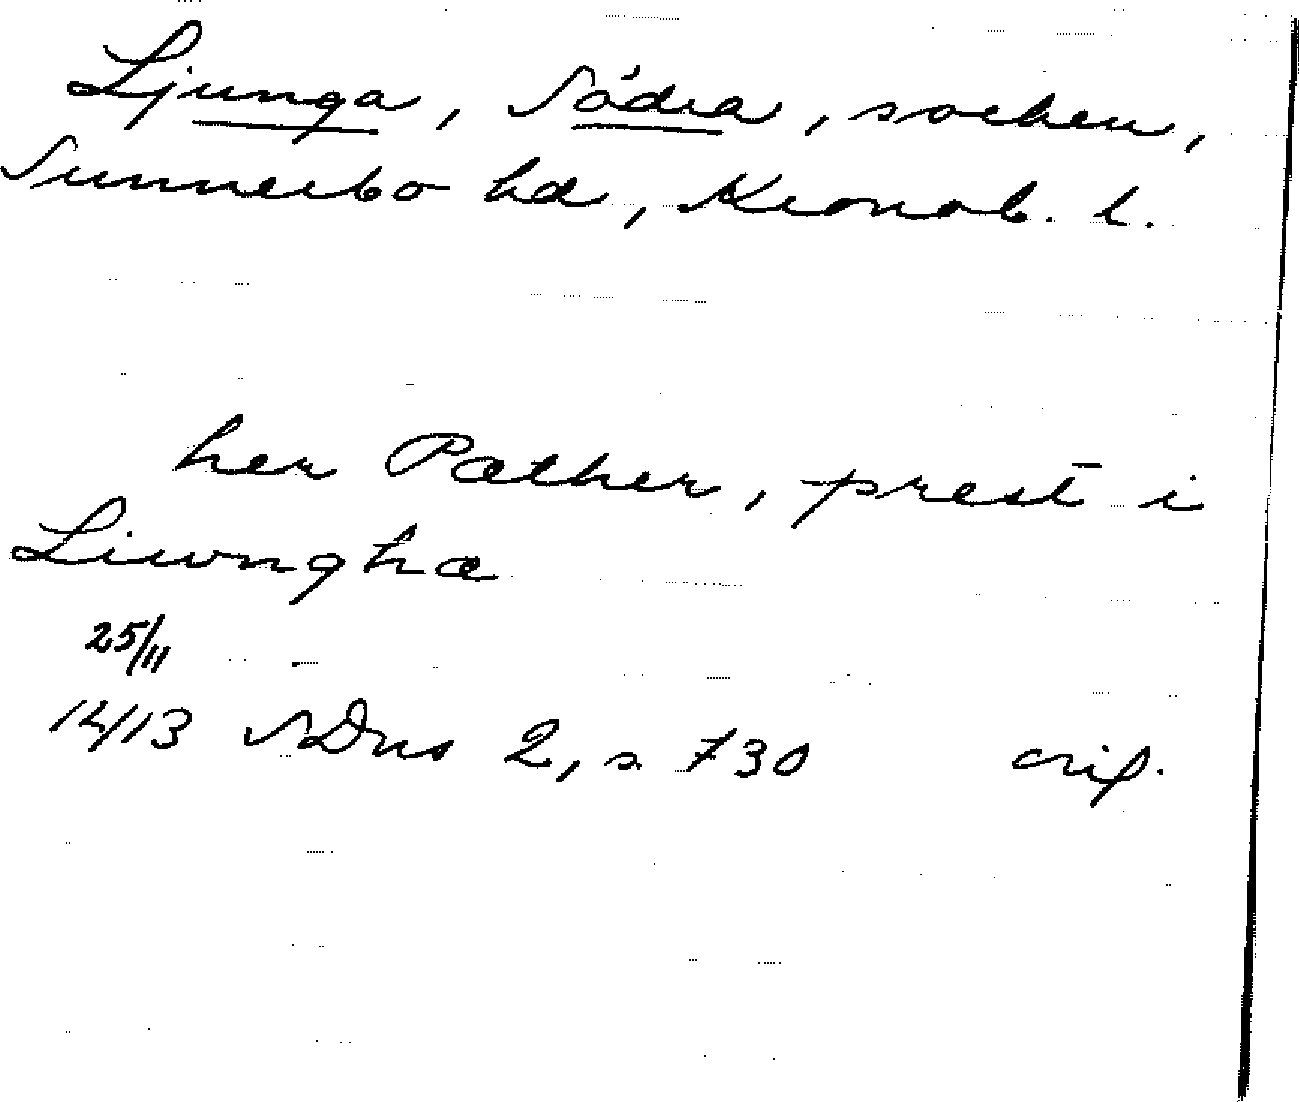 Ljunga, Södra, socken,
Sunnerbo hd, Kronob. l.
her Pæther, prest i
Liwnghæ
25/11
1413 SDns 2, s. 730 orig.